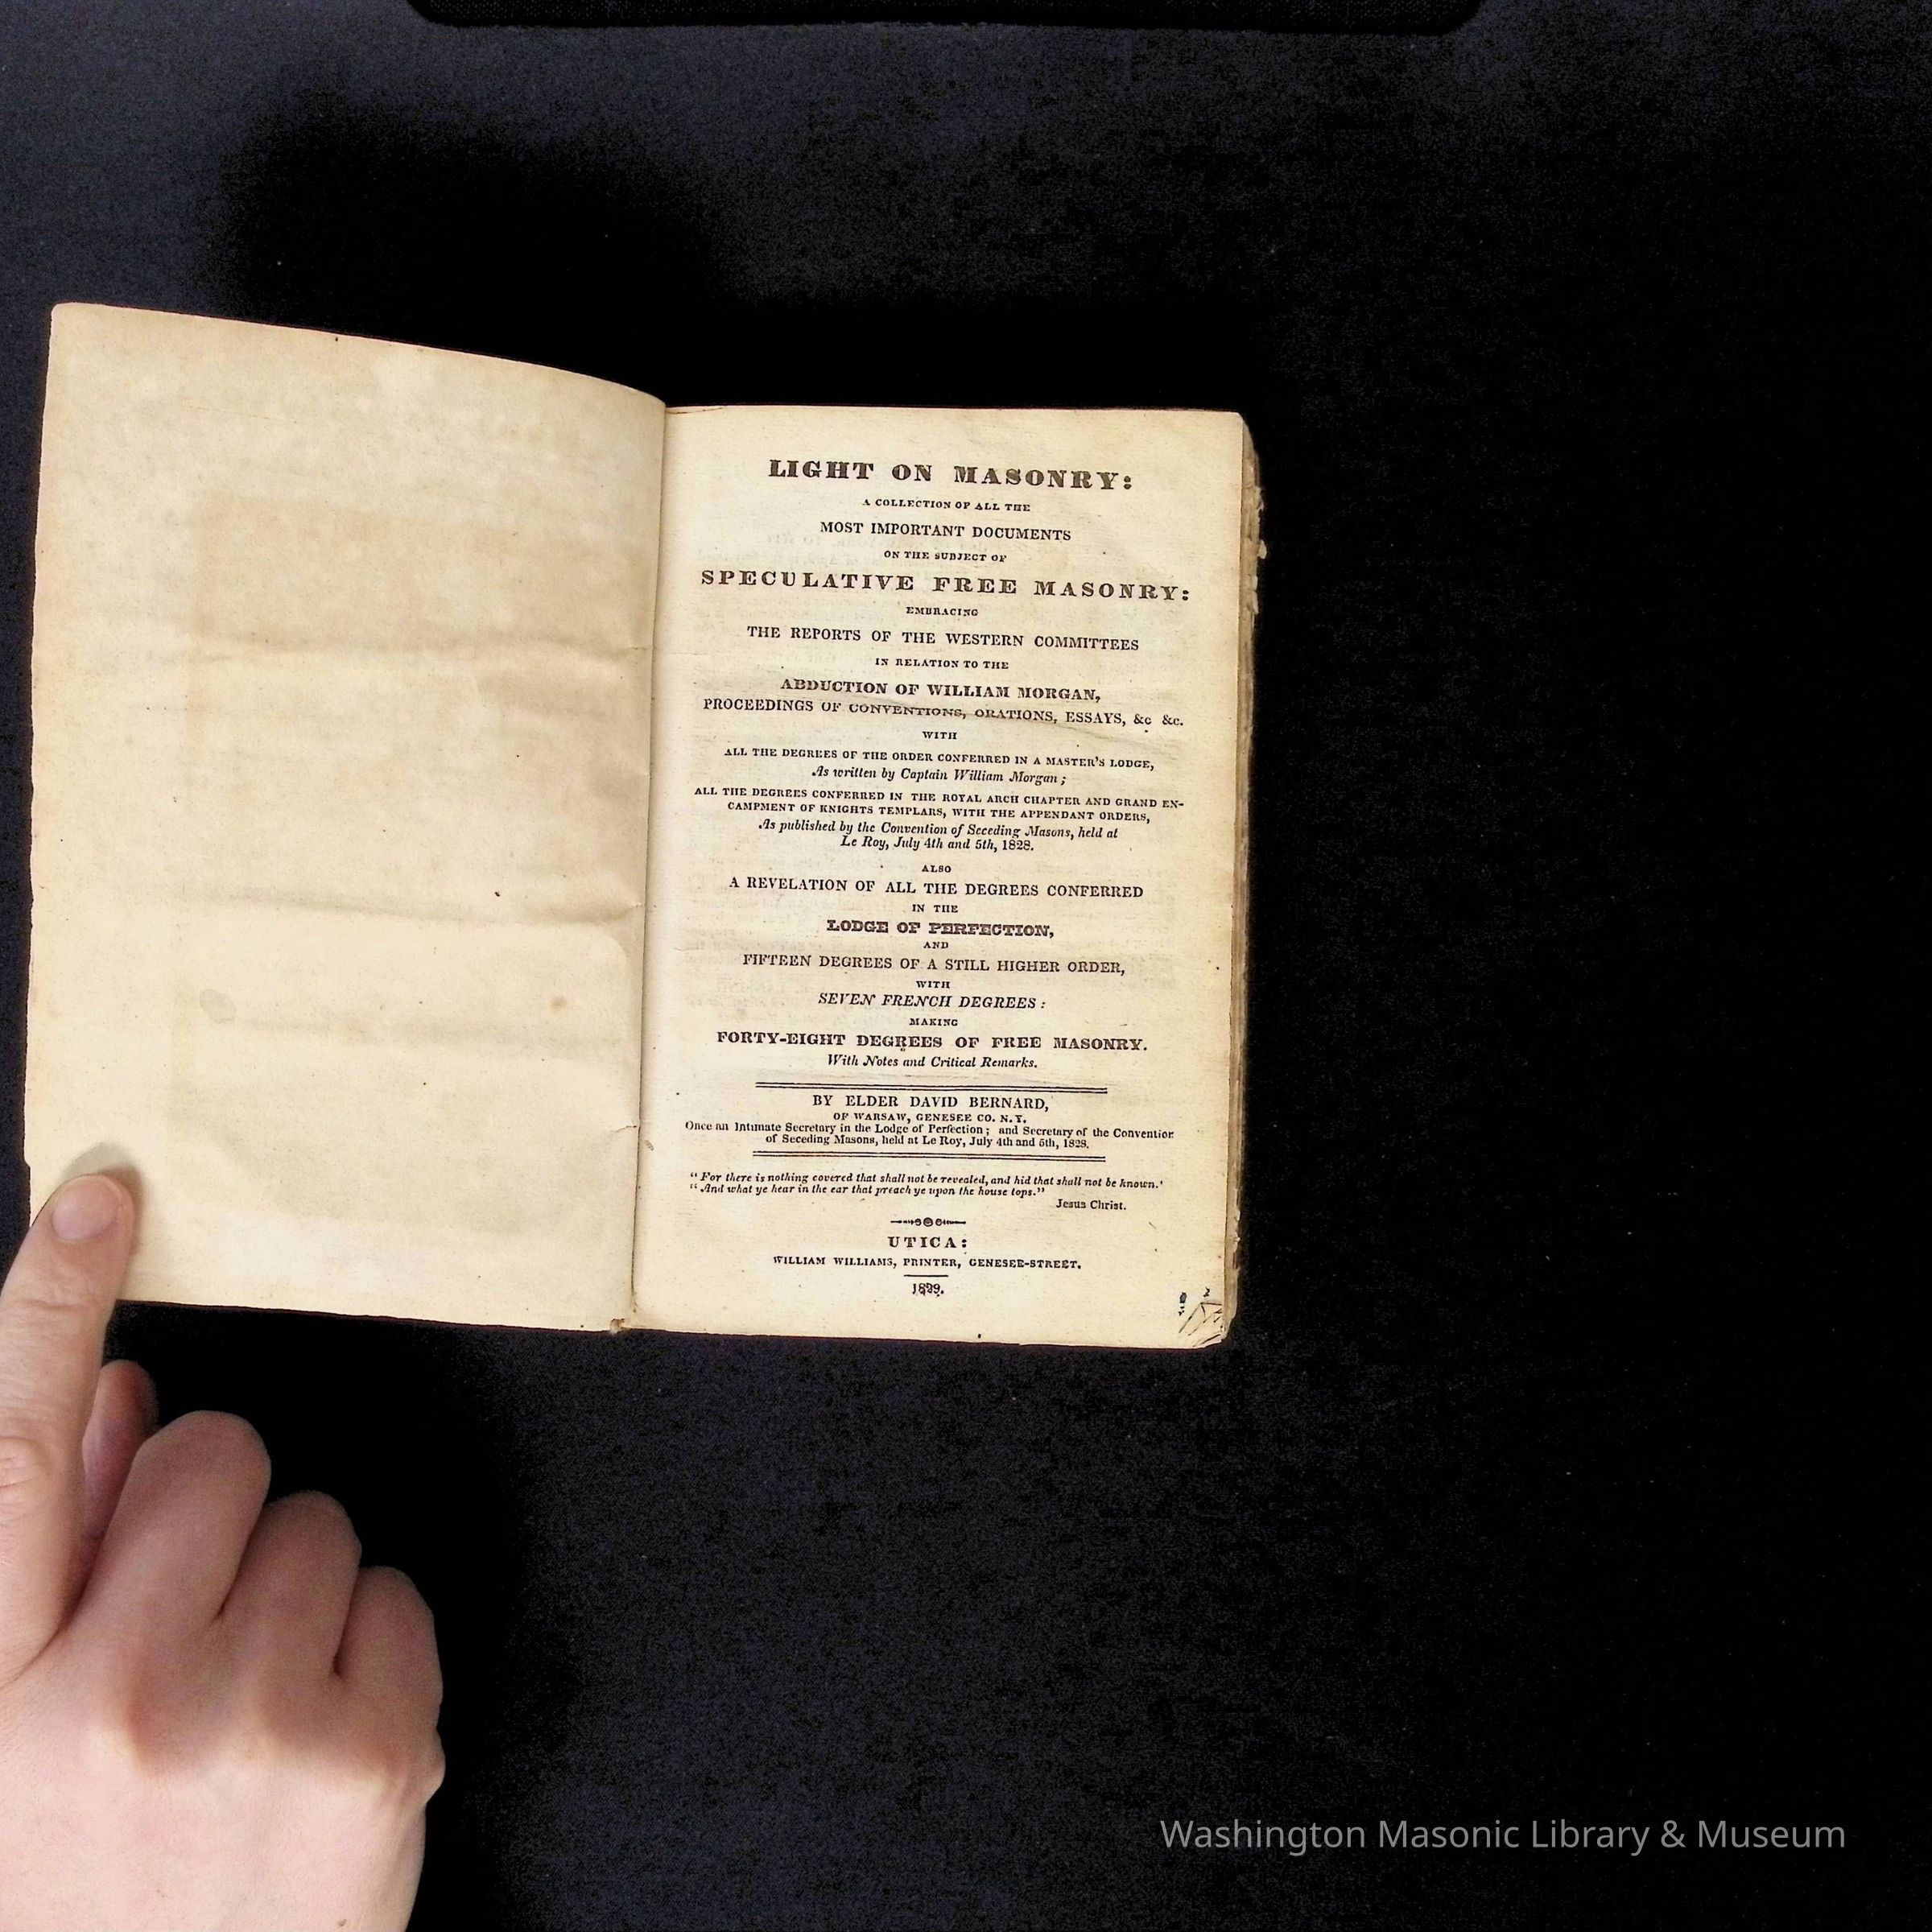 LIGHT ON MASONRY:
A COLLECTION OF ALL THE
MOST IMPORTANT DOCUMENTS
ON THE SUBJECT OF
SPECULATIVE FREE MASONRY:
EMBRACING
THE REPORTS OF THE WESTERN COMMITTEES
IN RELATION TO THE
ABDUCTION OF WILLIAM MORGAN,
PROCEEDINGS OF CONVENTIONS, ORATIONS, ESSAYS, &c &c.
WITH
ALL THE DEGREES OF THE ORDER CONFERRED IN A MASTER'S LODGE,
As written by Captain William Morgan;
ALL THE DEGREES CONFERRED IN THE ROYAL ARCH CHAPTER AND GRAND EN-
CAMPMENT OF KNIGHTS TEMPLARS, WITH THE APPENDANT ORDERS,
As published by the Convention of Seceding Masons, held at
Le Roy, July 4th and 5th, 1828.
ALSO
A REVELATION OF ALL THE DEGREES CONFERRED
IN THE
LODGE OF PERFECTION,
AND
FIFTEEN DEGREES OF A STILL HIGHER ORDER,
WITH
SEVEN FRENCH DEGREES:
MAKING
FORTY-EIGHT DEGREES OF FREE MASONRY.
With Notes and Critical Remarks.
BY ELDER DAVID BERNARD,
OF WARSAW, GENESEE CO. N.Y.
Once an Intimate Secretary in the Lodge of Perfection; and Secretary of the Convention
of Seceding Masons, held at Le Roy, July 4th and 5th, 1828.
"For there is nothing covered that shall not be revealed, and hid that shall not be known.'
"And what ye hear in the ear that preach ye upon the house tops."
Jesus Christ.
UTICA:
WILLIAM WILLIAMS, PRINTER, GENESEE-STREET.
1829.
Washington Masonic Library & Museum